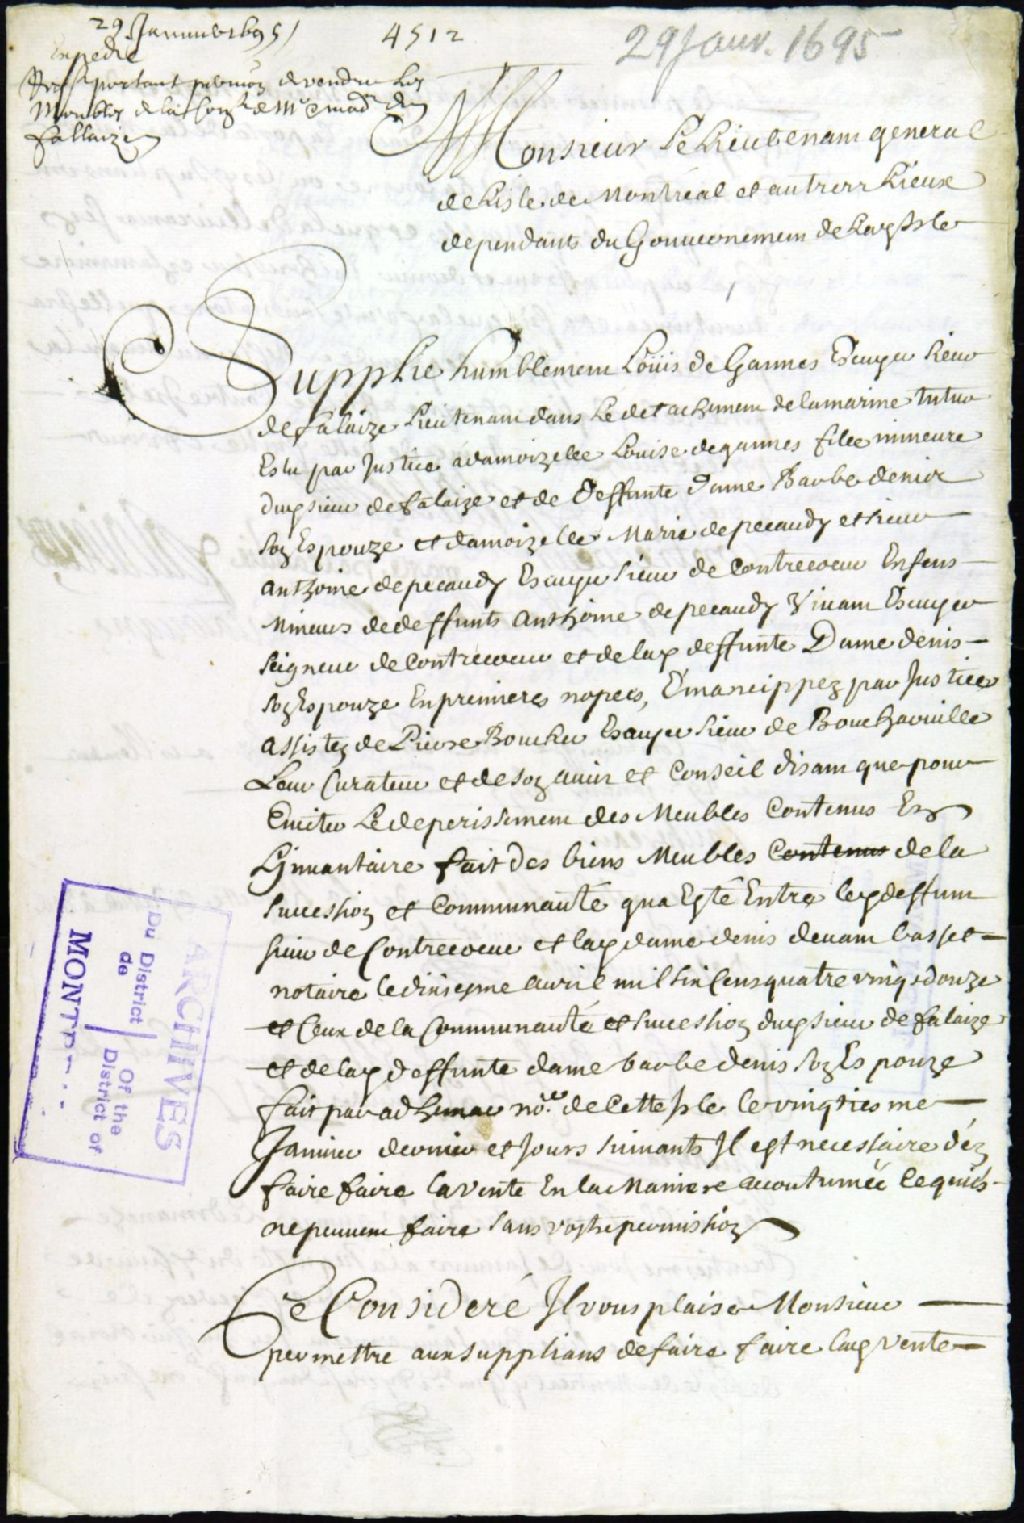 29 Janvier 1695
4512
29 Janv. 1695
Expedié
portant permiōn de vendre Les
Meubles de la Com.té de Mr & mad.e de
fallaize
Monsieur Le Lieutenant general
de L'isle de Montréal et autres Lieux
dependants du Gouvernement de Lad. Isle
Supplie humblement Loüis de Gannes Escuyer Sieur
de falaize Lieutenant dans Le detachement de la marine Tuteur
Eslu par Justice á damoizelle Louise de gannes fille mineure
dud. sieur de falaize et de Deffunte Dame Barbe denis
son Espouze et damoizelle Marie de pecaudy et sieur
anthoine de pecaudy Escuyer Sieur de Contrecoeur Enfens
Mineurs de deffunts anthoine de pecaudy Vivant Escuyer
Seigneur de Contrecoeur et de lad. deffunte Dame denis
son Espouze En premieres nopces, Émancippez par Justice
assistez de Pierre Boucher Escuyer Sieur de Boucherville
Leur Curateur et de son avis et Conseil disant que pour
Eviter Le deperissement des Meubles Contenus En
L'jnvantaire fait des biens Meubles Contenus de la
succession et Communauté qua Esté Entre led. deffunt
sieur de Contrecoeur et lad. dame denis devant basset
notaire le dixiesme avril mil six Cens quatre vingt douze
et Ceux de la Communauté et succession dud. sieur de falaize
et de lad. deffunte dame barbe denis son Espouze
fait par adhemar no.re de Cette Isle le vingtiesme
Janvier dernier et Jours suivants Il est necessaire d'en
faire faire la vente En la Maniere acoutumée Ce quils
ne peuvent faire sans vostre permission
Ce Consideré Il vous plaise Monsieur
permettre aux supplians de faire faire lad. vente
ARCHIVES
Du District | Of the
de | District of
MONT